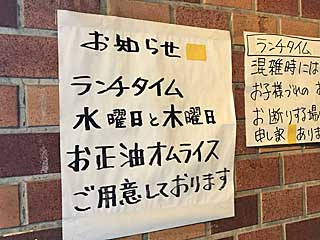 お知らせ
ランチタイム
水曜日と木曜日
お正油オムライス
ご用意しております
ランチタイム
混雑時には
お子様づれの お
お断りする場
申し訳 ありま